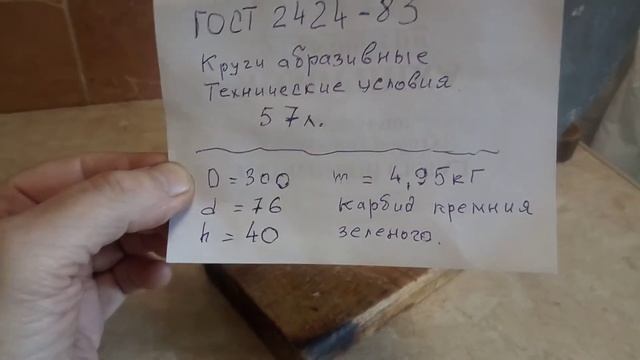 ГОСТ 2424-83
Круги абразивные
Технические условия.
57л.
D = 300 m = 4,95кг
d = 76 карбид кремния
h = 40 зеленого.